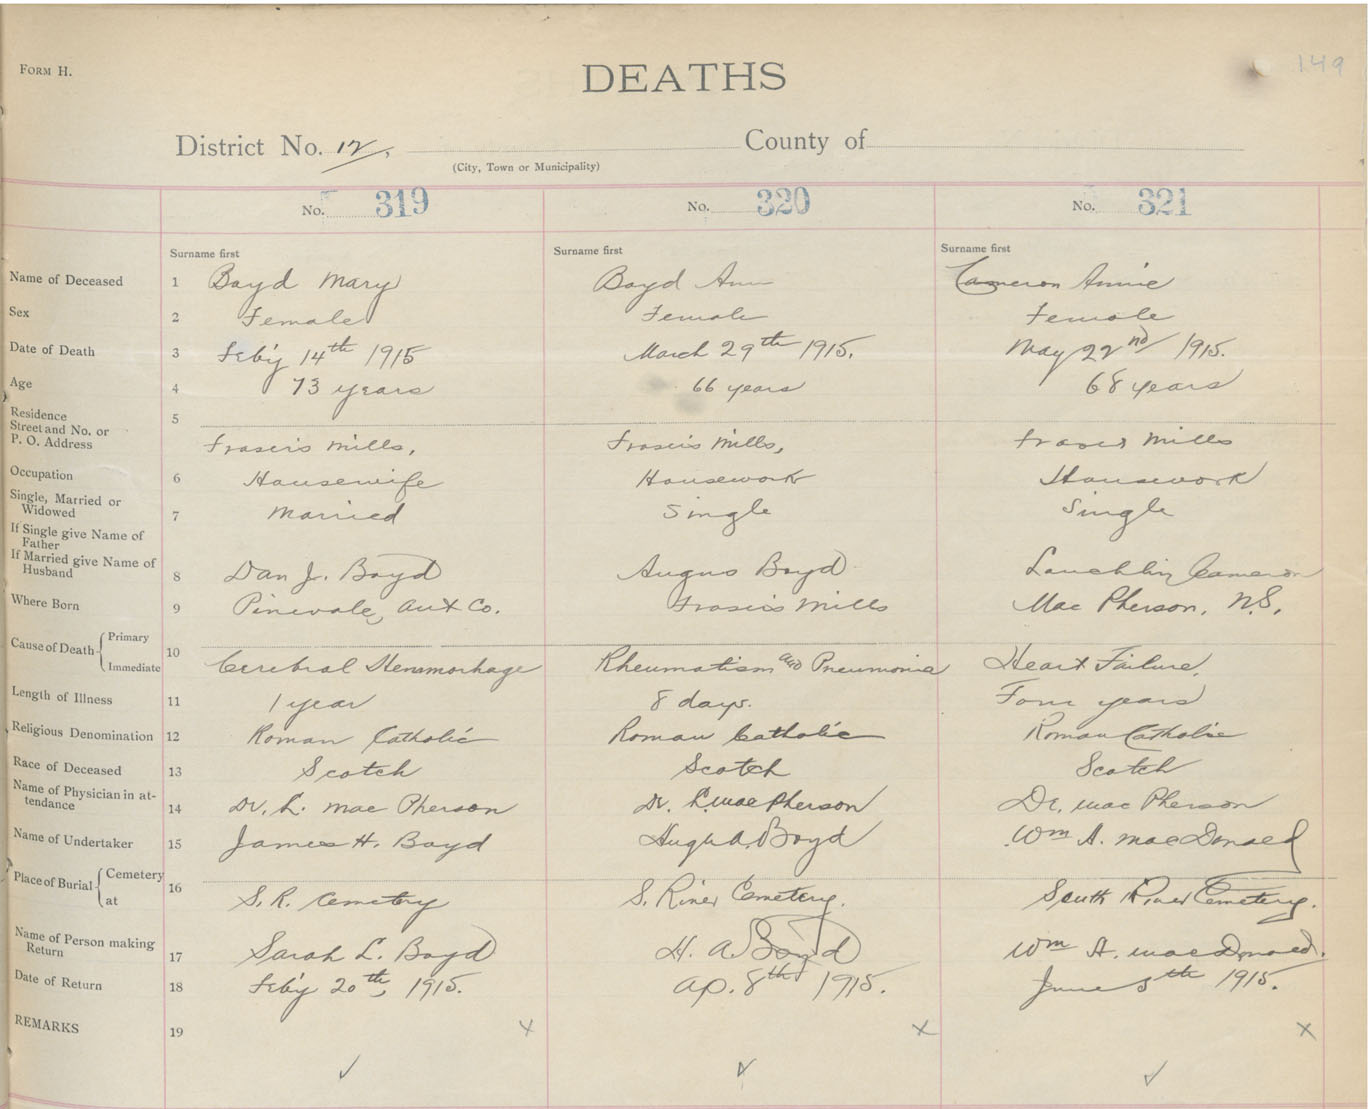 FORM H.
DEATHS
149
District No. 12, County of
(City, Town or Municipality)
No. 319 No. 320 No. 321
Surname first Surname first Surname first
Name of Deceased 1 Boyd Mary Boyd Ann Cameron Annie
Sex 2 Female Female Female
Date of Death 3 Feb'y 14th 1915 March 29th 1915. May 22nd 1915.
Age 4 73 years 66 years 68 years
Residence 5
Street and No. or
P. O. Address Frasers Mills, Frasers Mills, Frasers Mills
Occupation 6 Housewife Housework Housework
Single, Married or
Widowed 7 Married Single Single
If Single give Name of
Father
If Married give Name of
Husband 8 Dan J. Boyd Angus Boyd Lauchlin Cameron
Where Born 9 Pinevale, Ant Co. Frasers Mills Mac Pherson, N.S.
Cause of Death Primary 10
Immediate Cerebral Hemorrhage Rheumatism and Pneumonia Heart Failure.
Length of Illness 11 1 year 8 days. Four years
Religious Denomination 12 Roman Catholic Roman Catholic Roman Catholic
Race of Deceased 13 Scotch Scotch Scotch
Name of Physician in at-
tendance 14 Dr. L. Mac Pherson Dr. L. Mac Pherson Dr. Mac Pherson
Name of Undertaker 15 James H. Boyd Hugh A. Boyd Wm A. MacDonald
Place of Burial Cemetery 16
at S. R. Cemetery S. River Cemetery. South River Cemetery.
Name of Person making
Return 17 Sarah L. Boyd H. A. Boyd Wm A. MacDonald.
Date of Return 18 Feb'y 20th, 1915. Ap. 8th 1915. June 5th 1915.
REMARKS 19 x x x